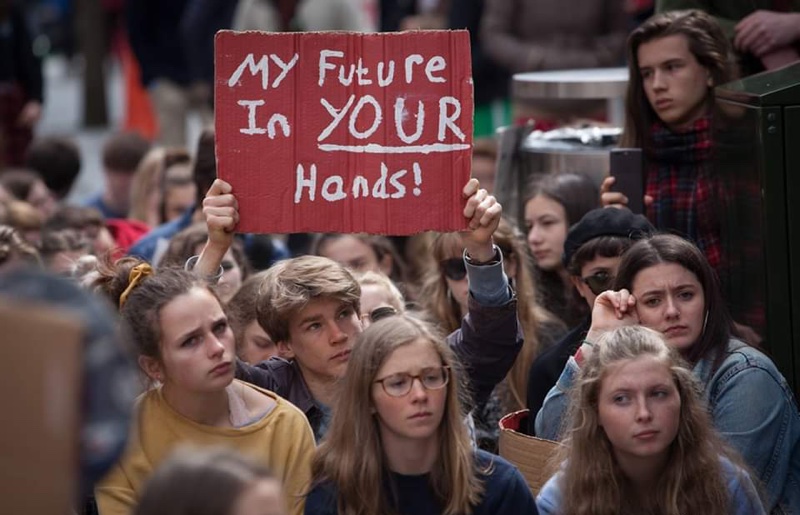 My Future
In YOUR
Hands!